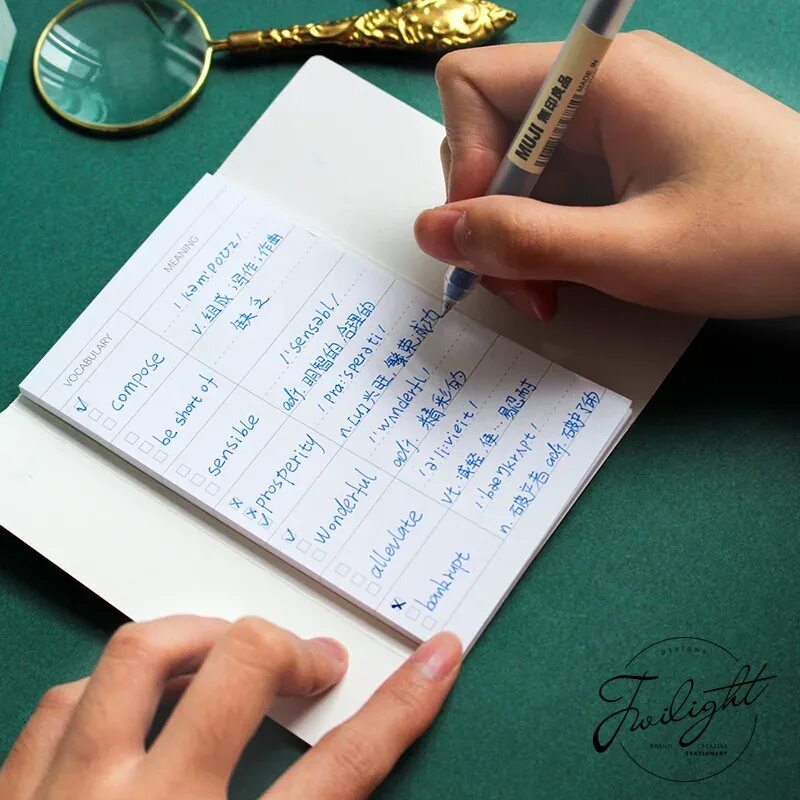 MUJI 無印良品
MADE IN
VOCABULARY
MEANING
compose
/kəm'pəʊz/
v. 组成;写作;作曲
be short of
缺乏
sensible
/'sensəbl/
adj. 明智的,合理的
prosperity
/prɑːsperəti/
n. 兴旺,繁荣,成功
Wonderful
/'wʌndərfl/
adj. 精彩的
alleviate
/ə'liːvieɪt/
vt. 减轻,使…易忍耐
bankrupt
/'bæŋkrʌpt/
n. 破产者 adj. 破产的
DESIGNS
Twilight
BRAND CREATIVE
STATIONERY